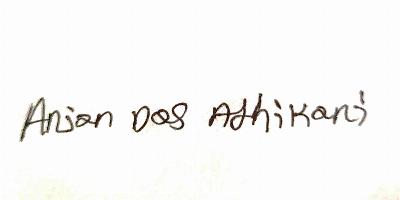 Anjan Das Adhikari